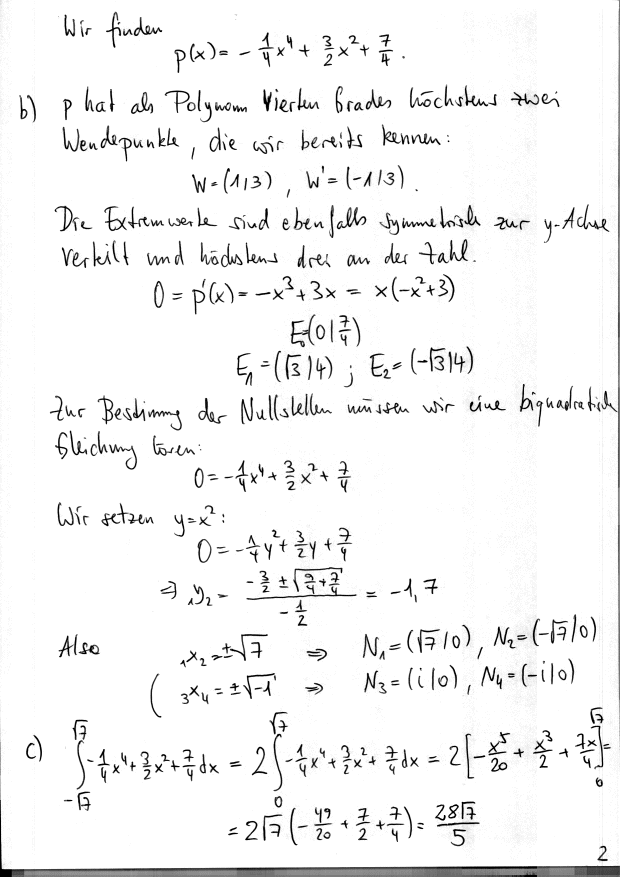 Wir finden
p(x) = - 1/4 x⁴ + 3/2 x² + 7/4 .
b) p hat als Polynom vierten Grades höchstens zwei
Wendepunkte, die wir bereits kennen:
W = (1|3) , W' = (-1|3) .
Die Extremwerte sind ebenfalls symmetrisch zur y-Achse
verteilt und höchstens drei an der Zahl.
0 = p'(x) = -x³ + 3x = x(-x² + 3)
E₀ = (0 | 7/4)
E₁ = (√3 | 4) ; E₂ = (-√3 | 4)
Zur Bestimmung der Nullstellen müssen wir eine biquadratische
Gleichung lösen:
0 = - 1/4 x⁴ + 3/2 x² + 7/4
Wir setzen y = x² :
0 = - 1/4 y² + 3/2 y + 7/4
⇒ ₁y₂ = (- 3/2 ± √(9/4 + 7/4)) / (- 1/2) = -1, 7
Also ₁x₂ = ±√7 ⇒ N₁ = (√7 | 0) , N₂ = (-√7 | 0)
( ₃x₄ = ±√-1 ⇒ N₃ = (i | 0) , N₄ = (-i | 0)
c) ∫_{-√7}^{√7} - 1/4 x⁴ + 3/2 x² + 7/4 dx = 2 ∫_0^{√7} - 1/4 x⁴ + 3/2 x² + 7/4 dx = 2 [ - x⁵/20 + x³/2 + 7x/4 ]_0^{√7} =
= 2√7 ( - 49/20 + 7/2 + 7/4 ) = 28√7/5
2